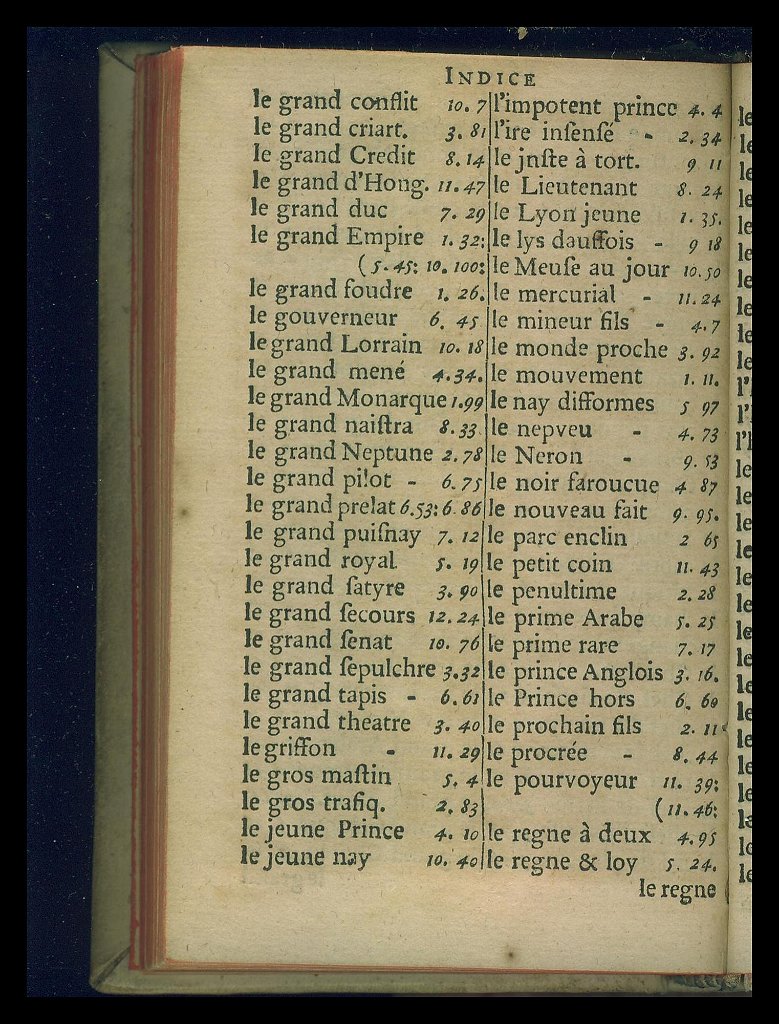 INDICE
le grand conflit 10. 7
le grand criart. 3. 81
le grand Credit 8. 14
le grand d'Hong. 11. 47
le grand duc 7. 29
le grand Empire 1. 32:
(5. 45: 10. 100:
le grand foudre 1. 26.
le gouverneur 6. 45
le grand Lorrain 10. 18
le grand mené 4. 34.
le grand Monarque 1.99
le grand naiſtra 8. 33
le grand Neptune 2. 78
le grand pilot - 6. 75
le grand prelat 6.53: 6. 86
le grand puiſnay 7. 12
le grand royal 5. 19
le grand ſatyre 3. 90
le grand ſecours 12. 24
le grand ſenat 10. 76
le grand ſepulchre 3.32
le grand tapis - 6. 61
le grand theatre 3. 40
le griffon - 11. 29
le gros maſtin 5. 4
le gros trafiq. 2. 83
le jeune Prince 4. 10
le jeune nay 10. 40
l'impotent prince 4. 4
l'ire inſenſé - 2. 34
le jnſte à tort. 9 11
le Lieutenant 8. 24
le Lyon jeune 1. 35.
le lys dauffois - 9 18
le Meuſe au jour 10.50
le mercurial - 11. 24
le mineur fils - 4. 7
le monde proche 3. 92
le mouvement 1. 11.
le nay difformes 5 97
le nepveu - 4. 73
le Neron - 9. 53
le noir faroucue 4 87
le nouveau fait 9. 95.
le parc enclin 2 65
le petit coin 11. 43
le penultime 2. 28
le prime Arabe 5. 25
le prime rare 7. 17
le prince Anglois 3. 16.
le Prince hors 6. 60
le prochain fils 2. 11
le procrée - 8. 44
le pourvoyeur 11. 39:
(11. 46:
le regne à deux 4.95
le regne & loy 5. 24.
le regne